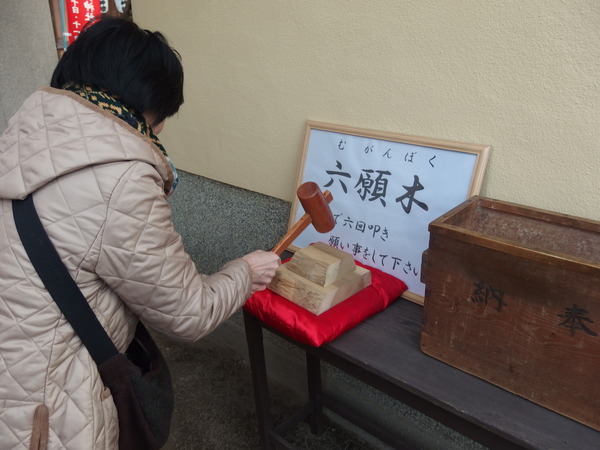 むがんぼく
六願木
で六回叩き
願い事をして下さい
奉納